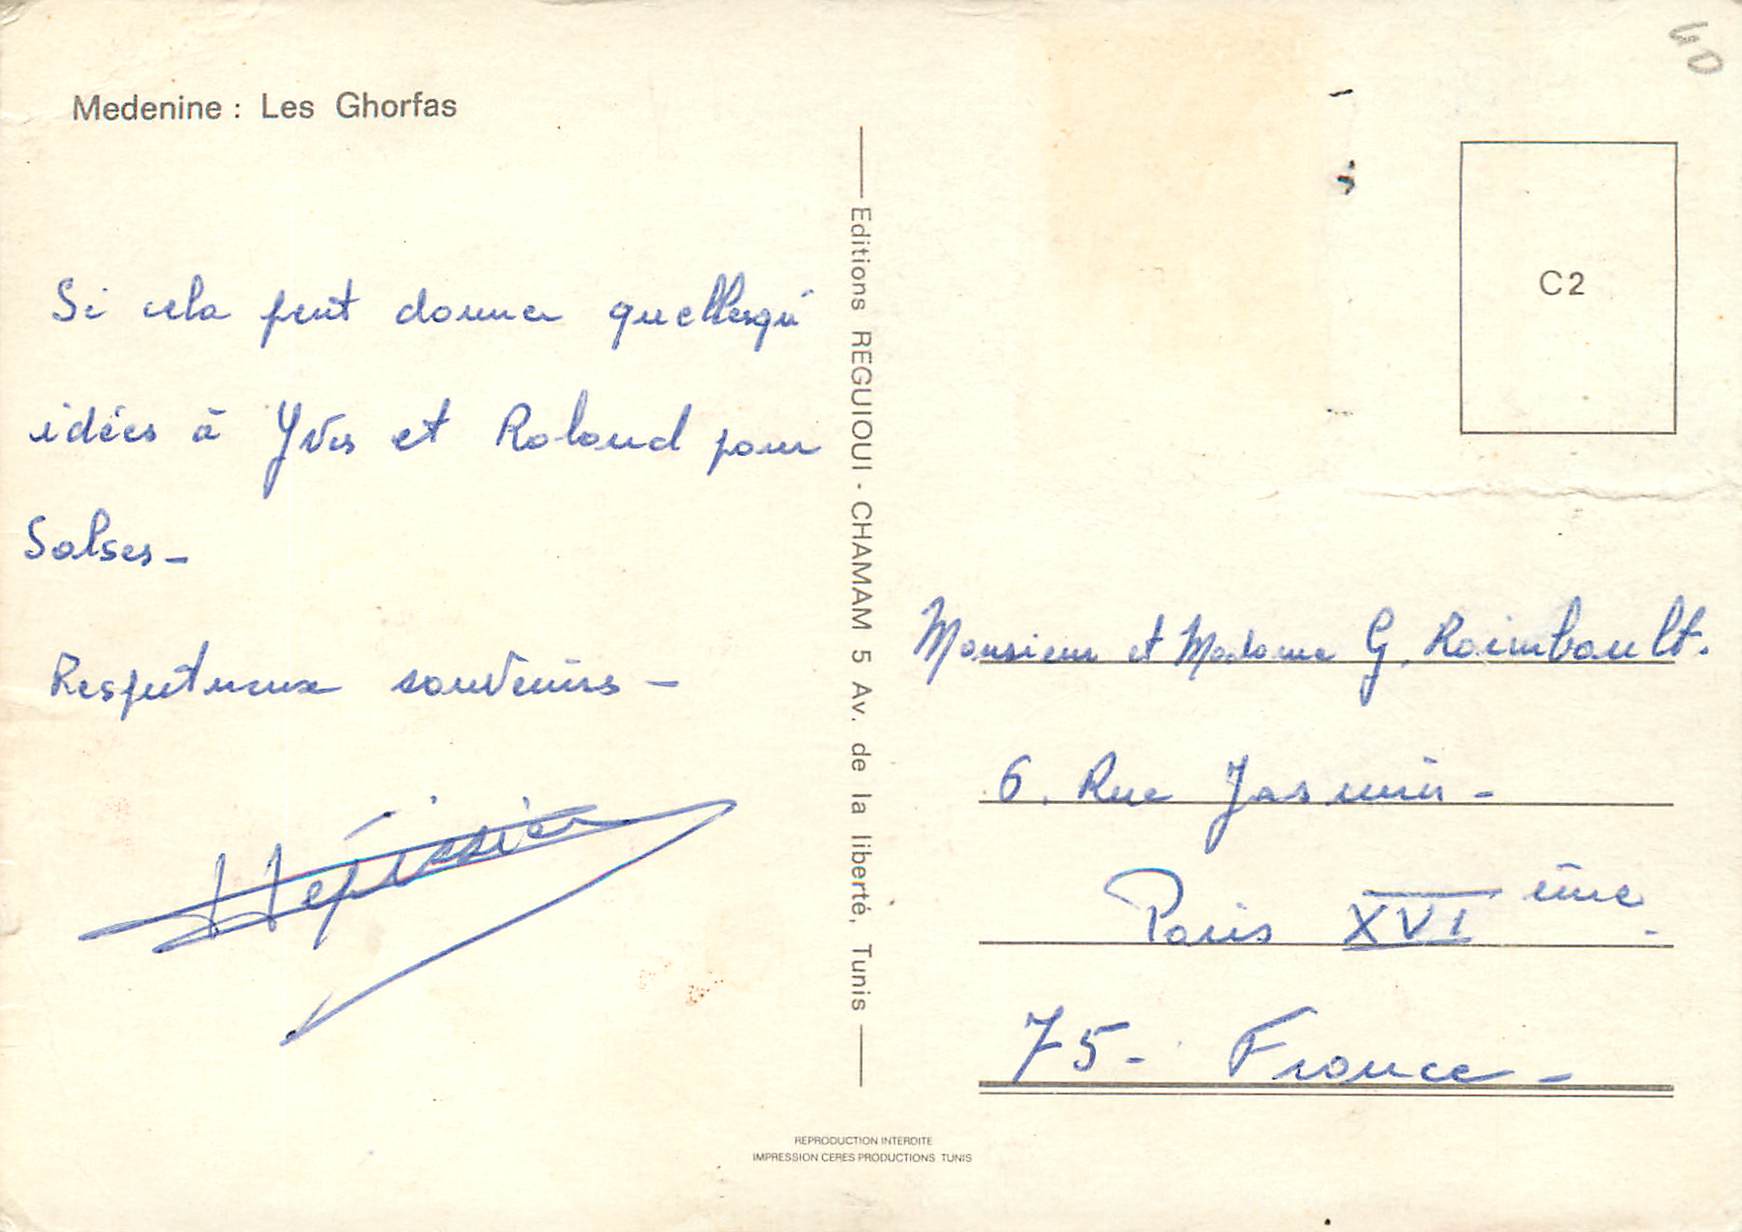 Medenine : Les Ghorfas
Si cela peut donner quellesqu
idées à Yves et Roland pour
Salses -
Respectueux souvenirs -
Editions REGUIOUI - CHAMAM 5 Av. de la liberté, Tunis
40
C2
Monsieur et Madame G. Raimbault.
6. Rue Jasmin -
Paris XVI ème.
75 - France -
REPRODUCTION INTERDITE
IMPRESSION CERES PRODUCTIONS TUNIS